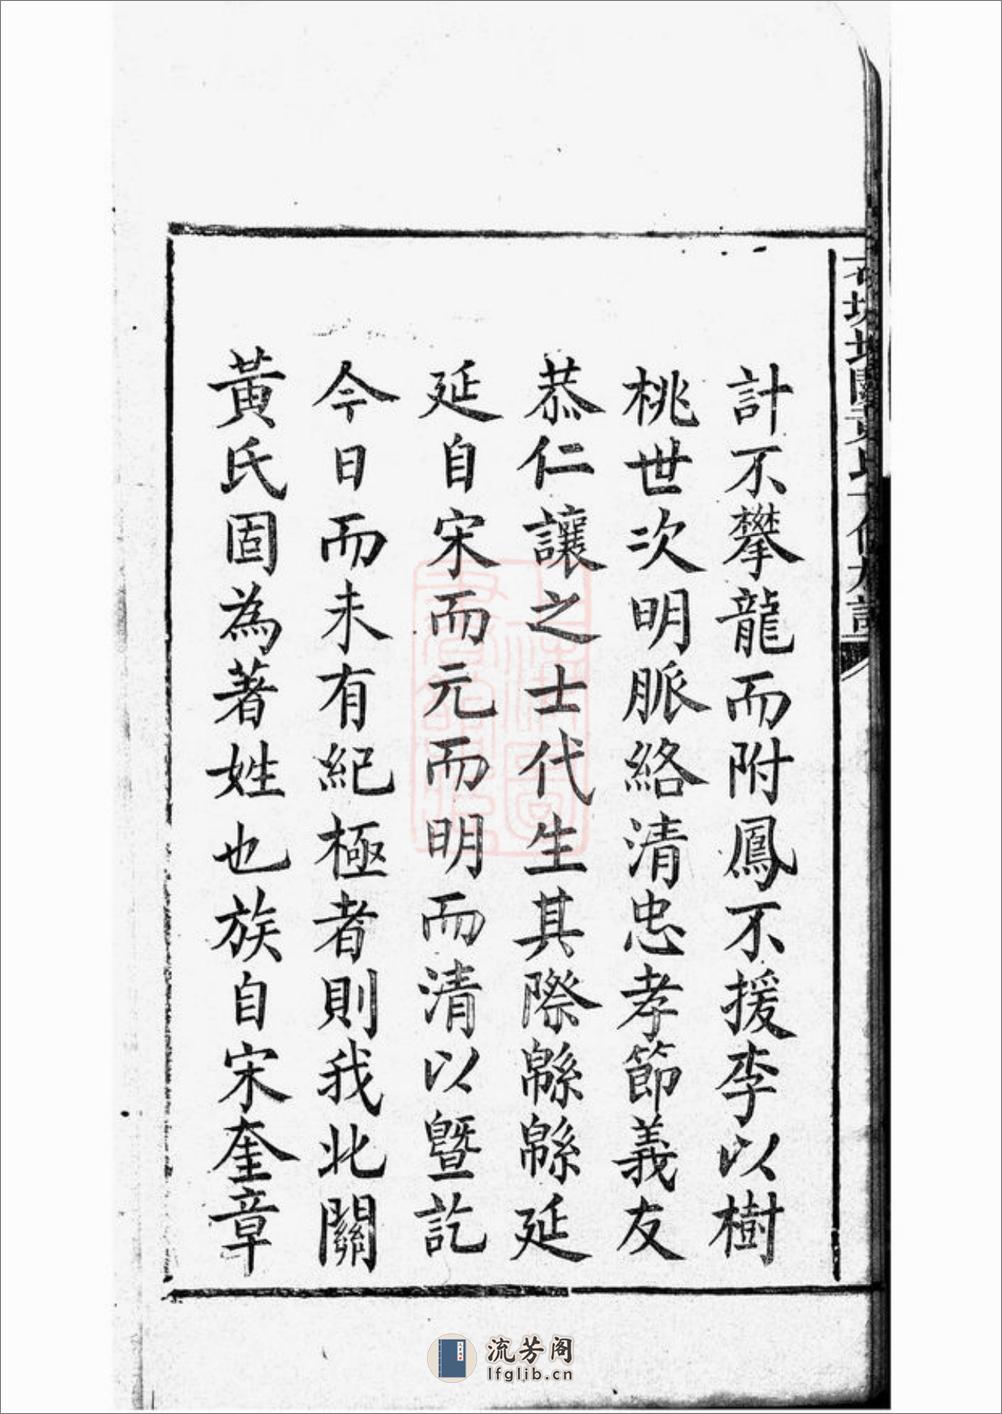 計不攀龍而附鳳不援李以樹
桃世次明脈絡清忠孝節義友
恭仁讓之士代生其際緜緜延
延自宋而元而明而清以曁訖
今日而未有紀極者則我北關
黃氏固為著姓也族自宋奎章
流芳阁
lfglib.cn